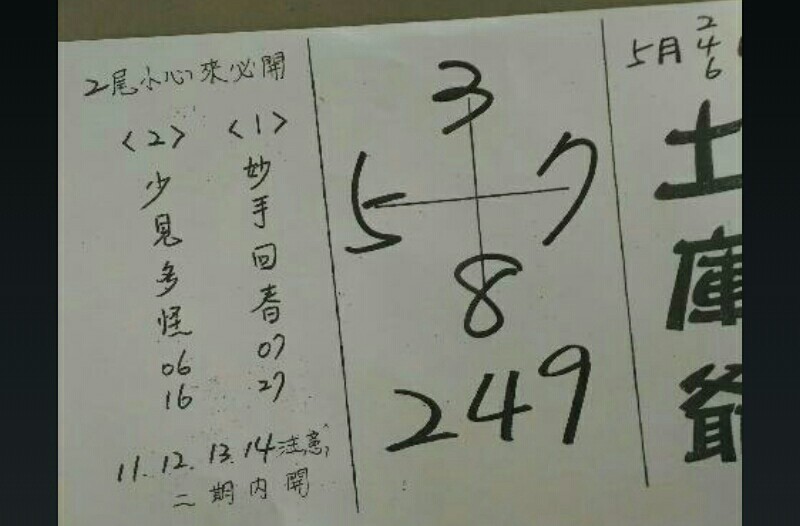 5月 2 4 6
土庫爺
3
5 7
8
249
2尾小心來必開
<1>
妙手回春
07
27
<2>
少見多怪
06
16
11.12.13.14注意,
二期内開